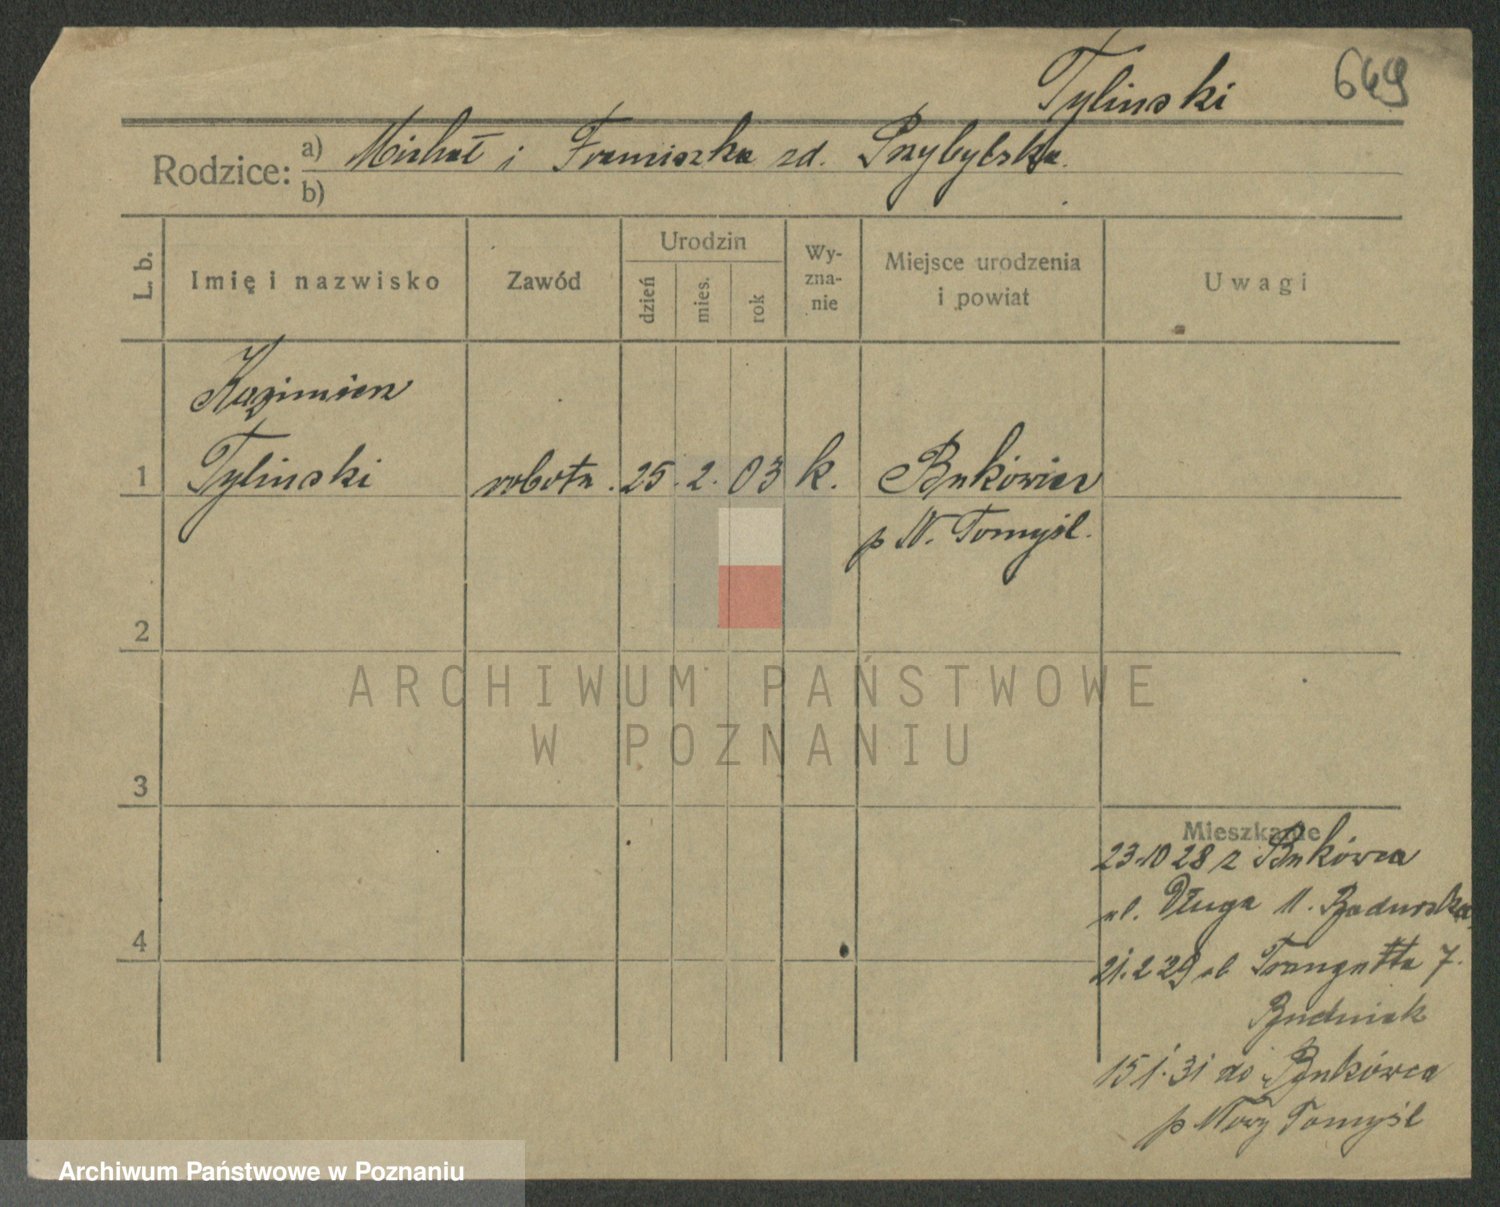 Tylinski 649
Rodzice: a) Michał i Franciszka zd. Przybylska.
b)
L. b. Imię i nazwisko Zawód Urodzin dzień mies. rok Wy-zna-nie Miejsce urodzenia i powiat Uwagi
Kazimierz
1 Tylinski robotn. 25. 2. 03 k. Bukowiec
p N. Tomyśl.
2
ARCHIWUM PAŃSTWOWE
W POZNANIU
3
Mieszkanie
23.10 28 z Bukówca
ul. Długa 11. Badurska
4
21.2 29 ul Traugutta 7.
Budniak
15 1. 31 do Bukówca
p Nowy Tomyśl
Archiwum Państwowe w Poznaniu